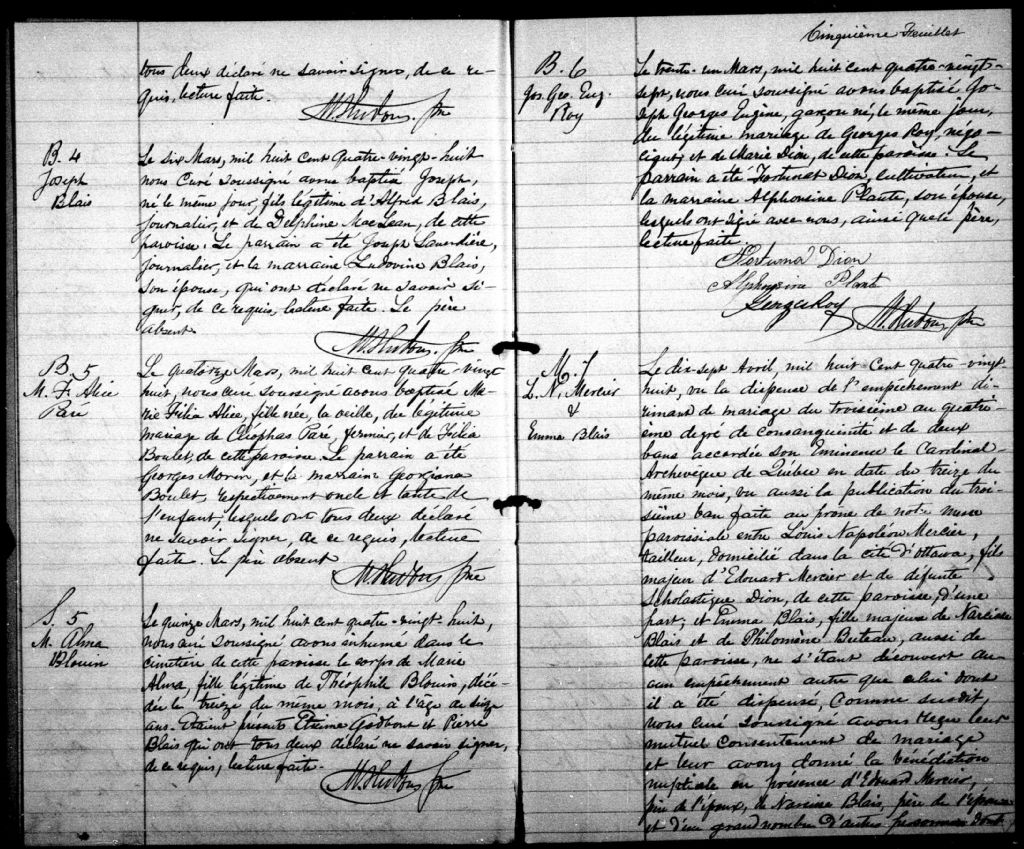 tous deux déclaré ne savoir signer, de ce re-
quis, lecture faite.
Ptre
B. 4
Joseph
Blais
Le six Mars, mil huit cent quatre-vingt-huit
nous Curé soussigné avons baptisé Joseph,
né le même jour, fils légitime d'Alfred Blais,
journalier, et de Delphine MacLean, de cette
paroisse. Le parrain a été Joseph Laverdière,
journalier, et la marraine Ludovine Blais,
son épouse, qui ont déclaré ne savoir si-
gner, de ce requis, lecture faite. Le père
absent.
Ptre
B. 5
M. F. Alice
Paré
Le quatorze Mars, mil huit cent quatre-vingt
huit, nous curé soussigné avons baptisé Ma-
rie Félia Alice, fille née, la veille, du légitime
mariage de Cléophas Paré, fermier, et de Félia
Boulet, de cette paroisse. Le parrain a été
Georges Morin, et la marraine Georgiana
Boulet, respectivement oncle et tante de
l'enfant, lesquels ont tous deux déclaré
ne savoir signer, de ce requis, lecture
faite. Le père absent
Ptre
S. 5
M. Alma
Blouin
Le quinze Mars, mil huit cent quatre-vingt huit,
nous curé soussigné avons inhumé dans le
cimetière de cette paroisse le corps de Marie
Alma, fille légitime de Théophile Blouin, décé-
dée le treize du même mois, à l'âge de seize
ans. Etaient présents Etienne Godbout et Pierre
Blais qui ont tous deux déclaré ne savoir signer,
de ce requis, lecture faite.
Ptre
Cinquième Feuillet
B. 6
Jos. Geo. Eug.
Roy
Le trente-un Mars, mil huit cent quatre-vingt-
sept, nous curé soussigné avons baptisé Jo-
seph Georges Eugène, garçon né, le même jour,
du légitime mariage de Georges Roy, négo-
ciant, et de Marie Dion, de cette paroisse. Le
parrain a été Fortunat Dion, cultivateur, et
la marraine Alphonsine Plante, son épouse,
lesquels ont signé avec nous, ainsi que le père,
lecture faite.
Fortunat Dion
Alphonsine Plante
George Roy
Ptre
M. 7
L. N. Mercier
&
Emma Blais
Le dix-sept Avril, mil huit cent quatre-vingt
huit, vu la dispense de l'empêchement di-
rimant de mariage du troisième au quatri-
ème degré de consanguinité et de deux
bans accordée son Eminence le Cardinal-
Archevêque de Québec en date du treize du
même mois, vu aussi la publication du troi-
sième ban faite au prône de notre messe
paroissiale entre Louis Napoléon Mercier,
tailleur, domicilié dans la cité d'Ottawa, fils
majeur d'Edouard Mercier et de défunte
Scholastique Dion, de cette paroisse, d'une
part; et Emma Blais, fille majeure de Narcisse
Blais et de Philomène Buteau, aussi de
cette paroisse, ne s'étant découvert au-
cun empêchement autre que celui dont
il a été dispensé, comme susdit,
nous curé soussigné avons reçu leur
mutuel consentement de mariage
et leur avons donné la bénédiction
nuptiale en présence d'Edouard Mercier,
père de l'époux, de Narcisse Blais, père de l'épouse
et d'un grand nombre d'autres personnes dont